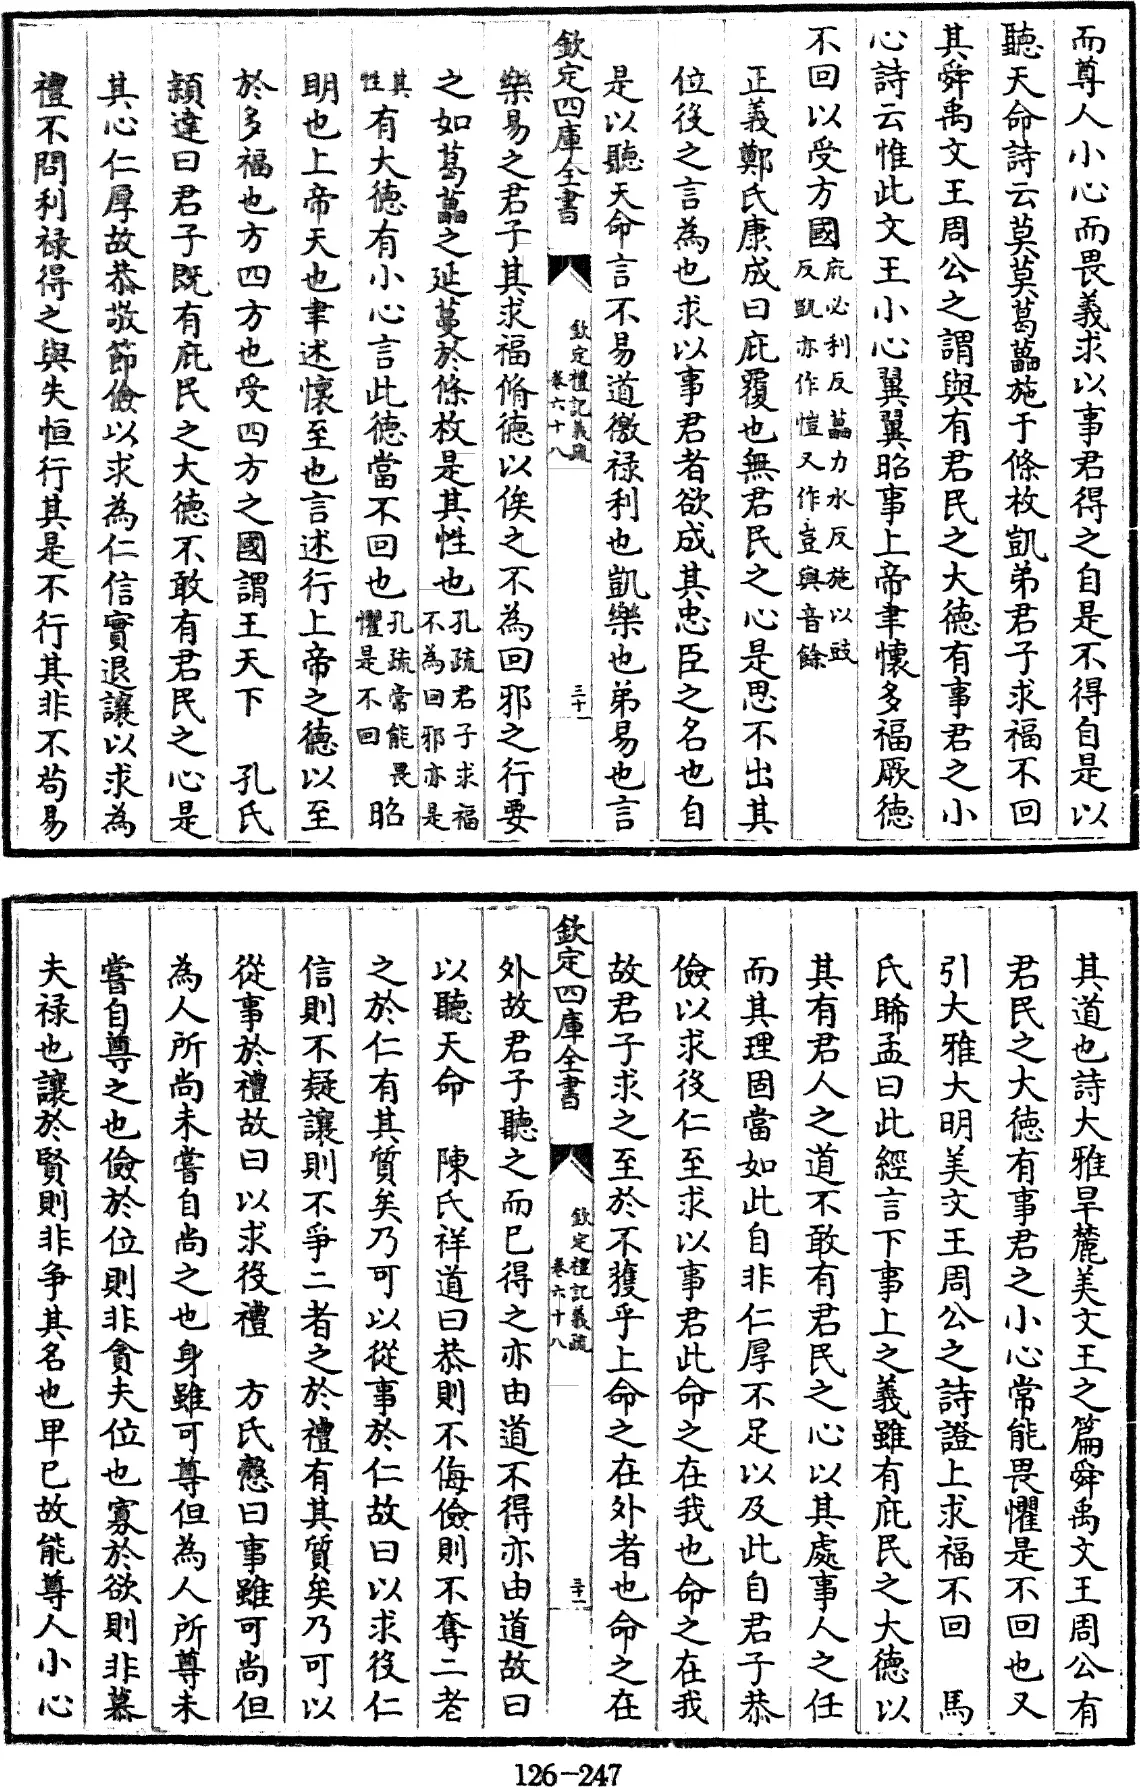 而尊人小心而畏義求以事君得之自是不得自是以
聽天命詩云莫莫葛藟施于條枚凱弟君子求福不回
其舜禹文王周公之謂與有君民之大德有事君之小
心詩云惟此文王小心翼翼昭事上帝聿懷多福厥德
不回以受方國庇必利反藟力水反施以豉
反凱亦作愷又作豈與音餘
正義鄭氏康成曰庇覆也無君民之心是思不出其
位役之言為也求以事君者欲成其忠臣之名也自
是以聽天命言不易道徼禄利也凱樂也弟易也言
欽定四庫全書
欽定禮記義疏
卷六十八
三十
樂易之君子其求福脩德以俟之不為回邪之行要
之如葛藟之延蔓於條枚是其性也孔疏君子求福
不為回邪亦是
其
性有大德有小心言此德當不回也孔疏常能畏
懼是不回昭
明也上帝天也聿述懷至也言述行上帝之德以至
於多福也方四方也受四方之國謂王天下　孔氏
穎達曰君子既有庇民之大德不敢有君民之心是
其心仁厚故恭敬節儉以求為仁信實退讓以求為
禮不問利禄得之與失恒行其是不行其非不茍易
其道也詩大雅旱麓美文王之篇舜禹文王周公有
君民之大德有事君之小心常能畏懼是不回也又
引大雅大明美文王周公之詩證上求福不回　馬
氏睎孟曰此經言下事上之義雖有庇民之大德以
其有君人之道不敢有君民之心以其處事人之任
而其理固當如此自非仁厚不足以及此自君子恭
儉以求役仁至求以事君此命之在我也命之在我
故君子求之至於不獲乎上命之在外者也命之在
欽定四庫全書
欽定禮記義疏
卷六十八
三十一
外故君子聽之而已得之亦由道不得亦由道故曰
以聽天命　陳氏祥道曰恭則不侮儉則不奪二者
之於仁有其質矣乃可以從事於仁故曰以求役仁
信則不疑讓則不爭二者之於禮有其質矣乃可以
從事於禮故曰以求役禮　方氏慤曰事雖可尚但
為人所尚未嘗自尚之也身雖可尊但為人所尊未
嘗自尊之也儉於位則非貪夫位也寡於欲則非慕
夫禄也讓於賢則非争其名也卑己故能尊人小心
126-247